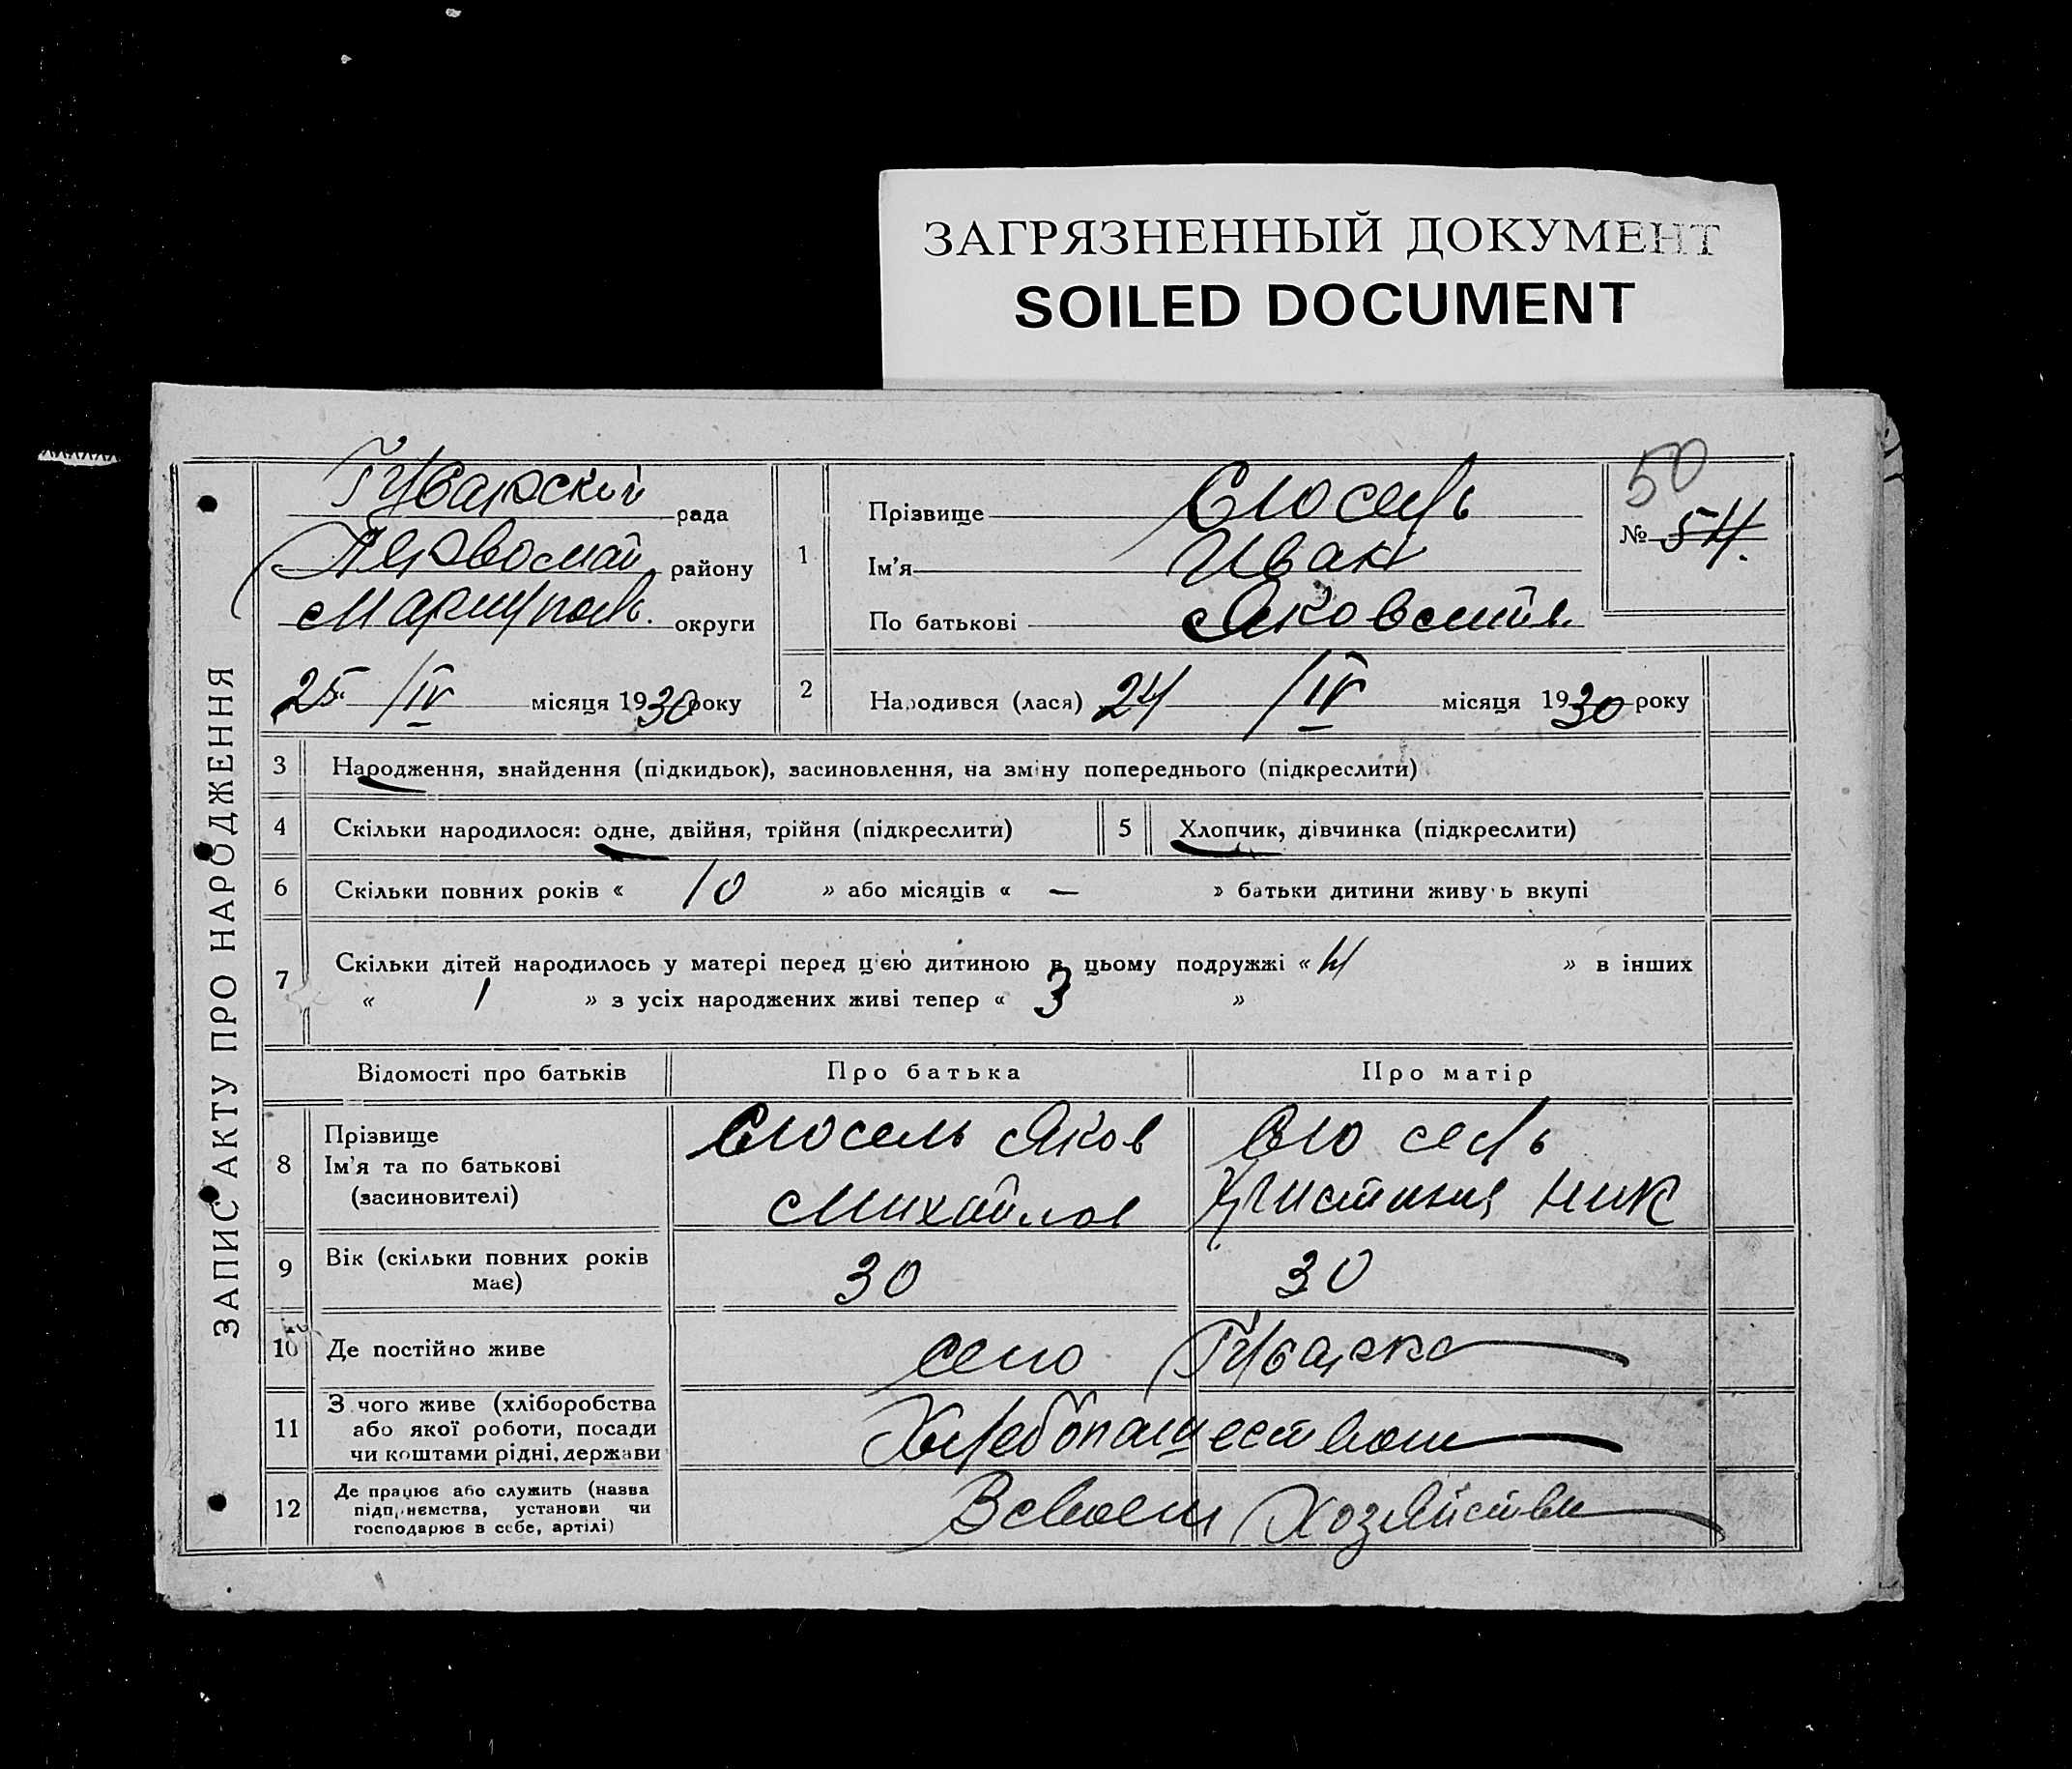 ЗАГРЯЗНЕННЫЙ ДОКУМЕНТ
SOILED DOCUMENT
ЗАПИС АКТУ ПРО НАРОДЖЕННЯ
рада
Первомай району
Мариуполь. округи
25 /IV місяця 1930 року
1
Прізвище Сюсель
Ім'я Иван
По батькові Яковлев.
50
№ 54.
2 Народився (лася) 24 /IV місяця 1930 року
3 Народження, знайдення (підкидьок), засиновлення, на зміну попереднього (підкреслити)
4 Скільки народилося: одне, двійня, трійня (підкреслити) 5 Хлопчик, дівчинка (підкреслити)
6 Скільки повних років « 10 » або місяців « — » батьки дитини живуть вкупі
7 Скільки дітей народилось у матері перед цією дитиною в цьому подружжі « 4 » в інших
« 1 » з усіх народжених живі тепер « 3 »
Відомості про батьків Про батька Про матір
8 Прізвище Ім'я та по батькові (засиновителі)
Сюсель Яков Михайлов
Сюсель Кристиния Ник
9 Вік (скільки повних років має) 30 30
10 Де постійно живе село
11 З чого живе (хліборобства або якої роботи, посади чи коштами рідні, держави
Хлебопашеством
12 Де працює або служить (назва підприємства, установи чи господарює в себе, артілі)
В своем Хозяйстве